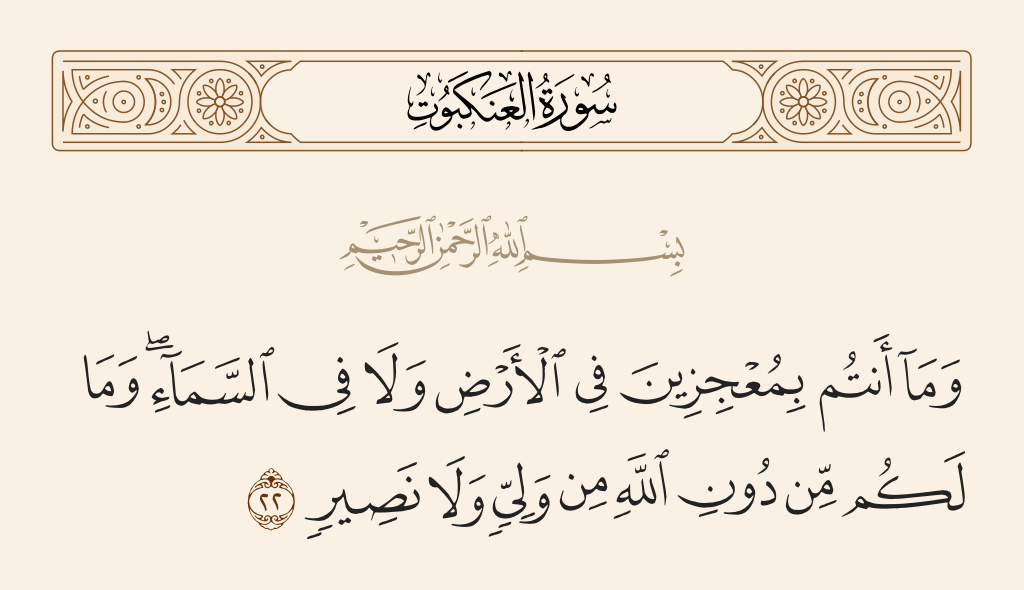 سُورَةُ العَنكَبُوتِ
بِسْمِ ٱللَّهِ ٱلرَّحْمَٰنِ ٱلرَّحِيمِ
وَمَآ أَنتُم بِمُعْجِزِينَ فِى ٱلْأَرْضِ وَلَا فِى ٱلسَّمَآءِ ۖ وَمَا
لَكُم مِّن دُونِ ٱللَّهِ مِن وَلِىٍّ وَلَا نَصِيرٍ ٢٢